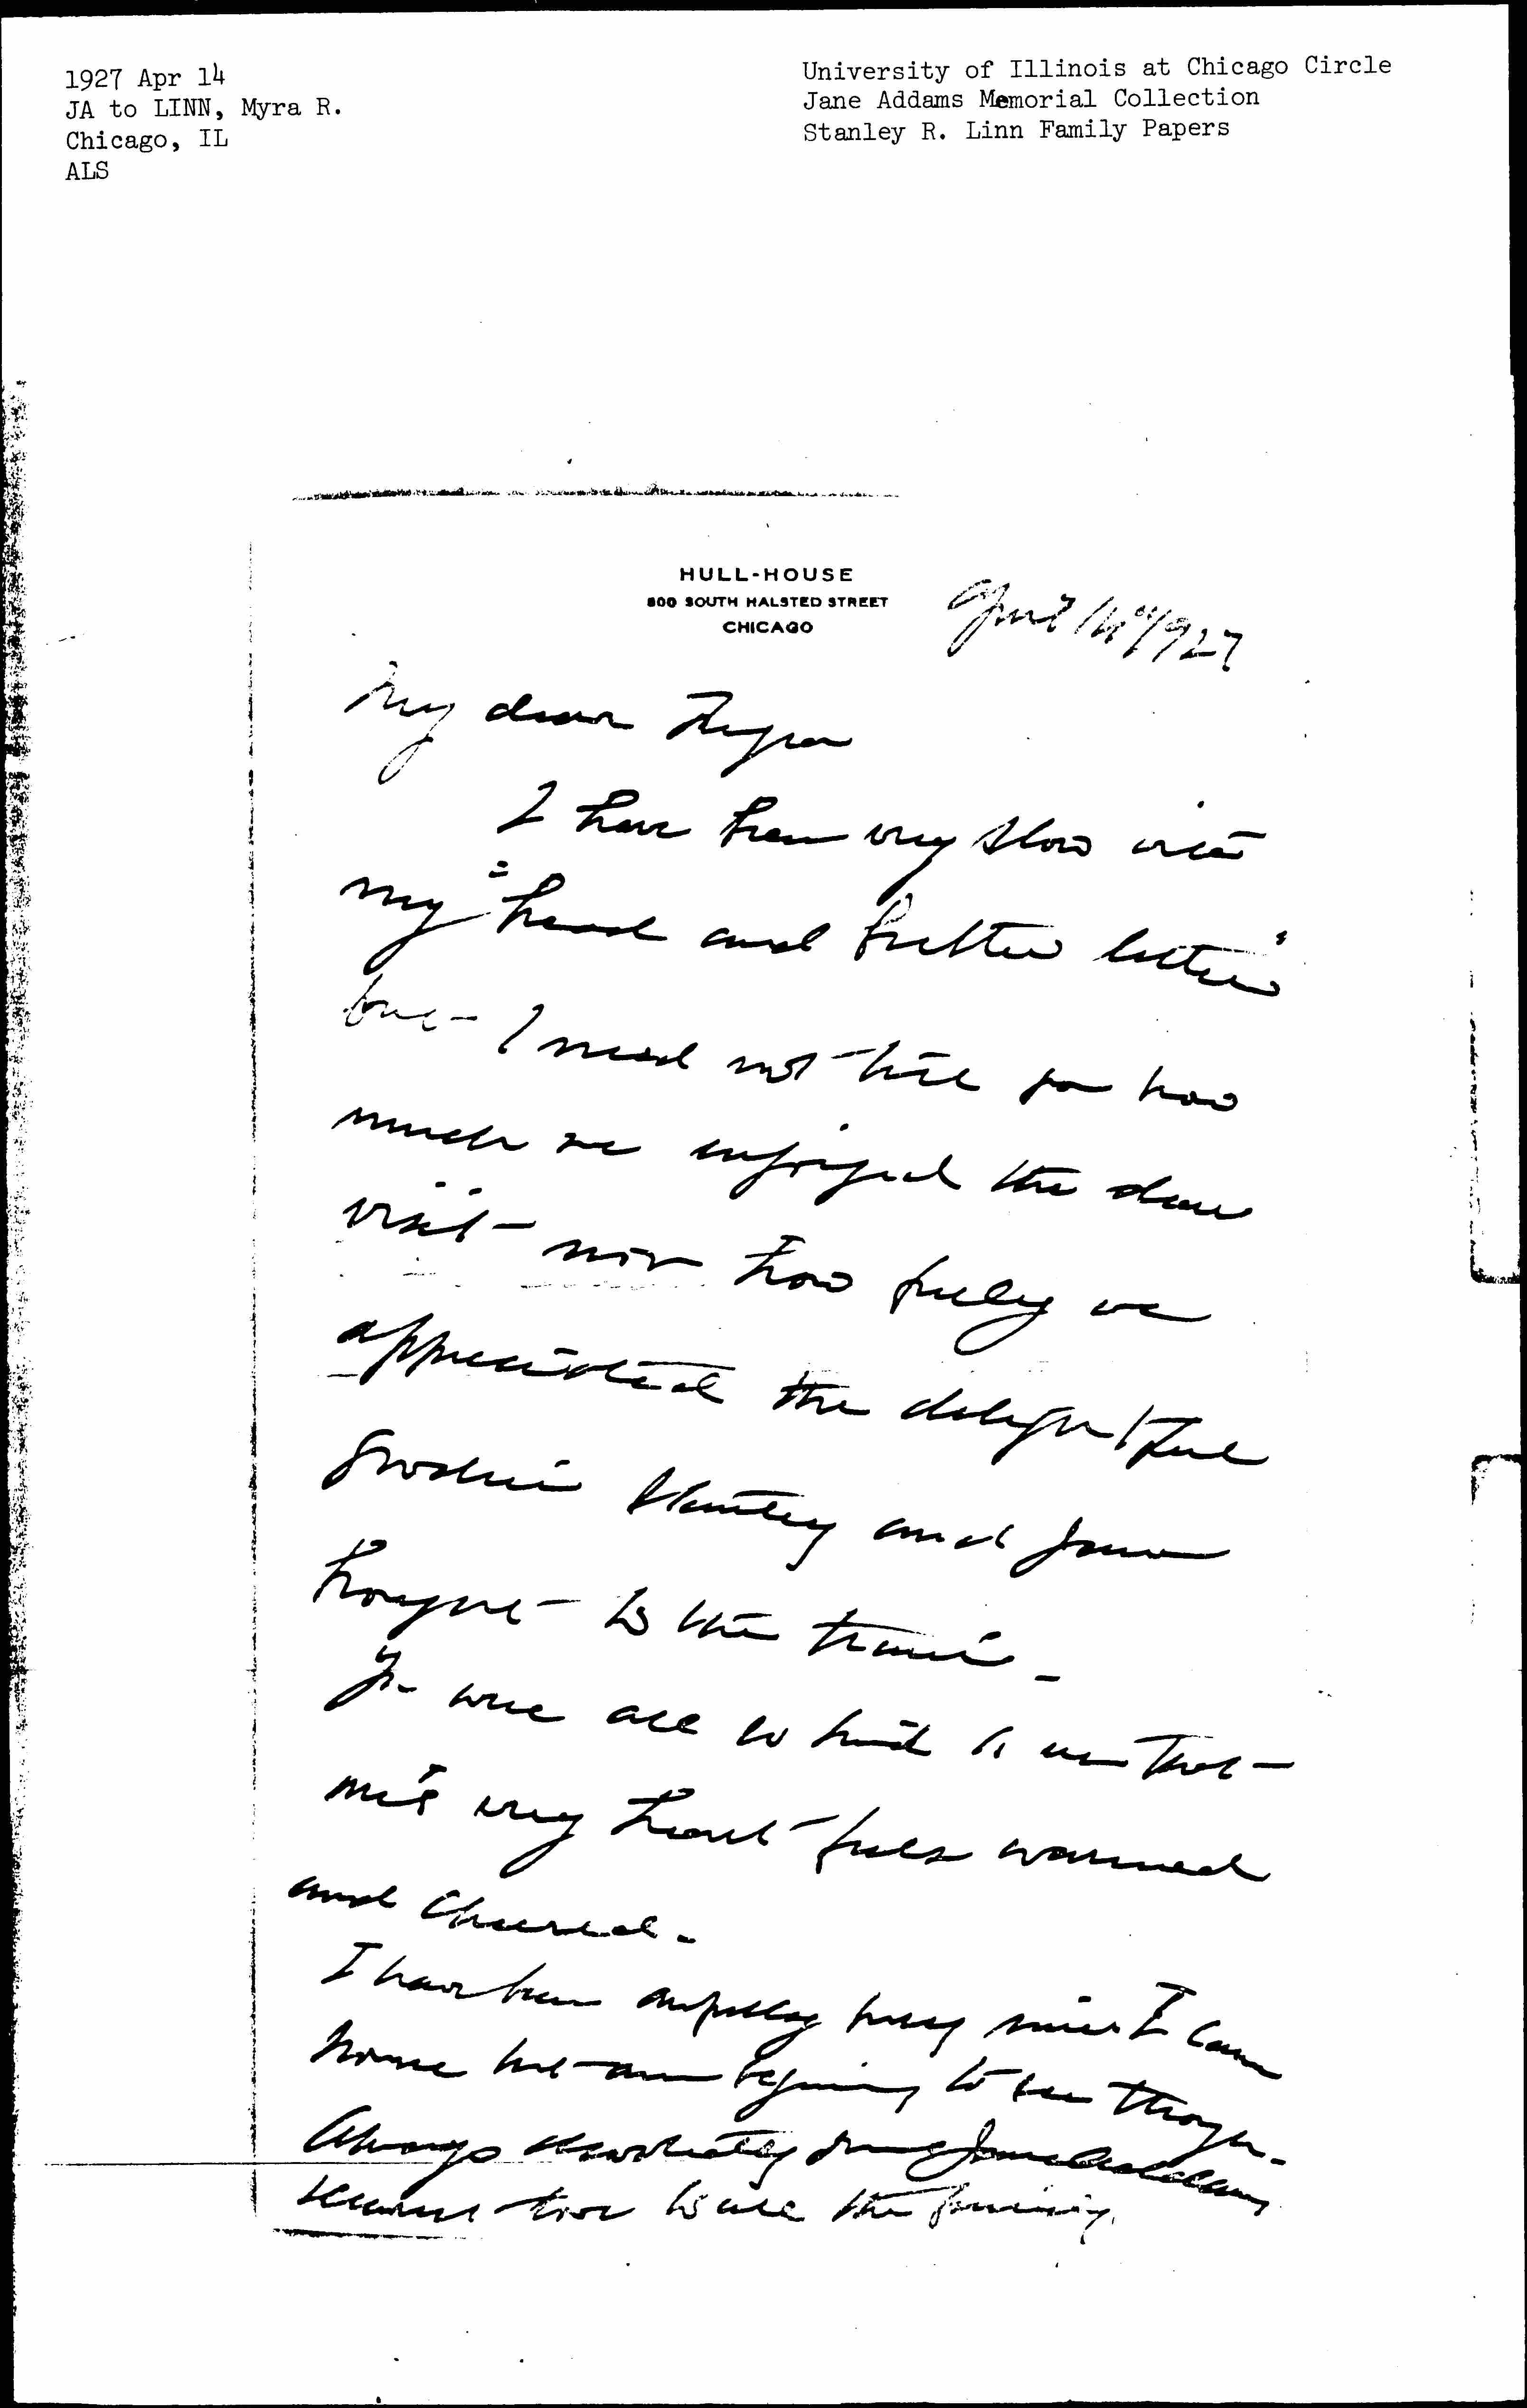 1927 Apr 14
JA to LINN, Myra R.
Chicago, IL
ALS
University of Illinois at Chicago Circle
Jane Addams Memorial Collection
Stanley R. Linn Family Papers
HULL-HOUSE
800 SOUTH HALSTED STREET
CHICAGO
April 14" 1927
My dear Myra
I have been very slow with
my "bread and butter letter"
but I need not tell you how
much we enjoyed the dear
visit nor how fully we
appreciated the delightful
Stanley and Jane
brought to the train -
You were all so kind to us that
my very heart feels warmed
and cheered -
I have been awfully busy since I came
home but am beginning to see through -
Always devotedly yours Jane Addams
love to all the family.